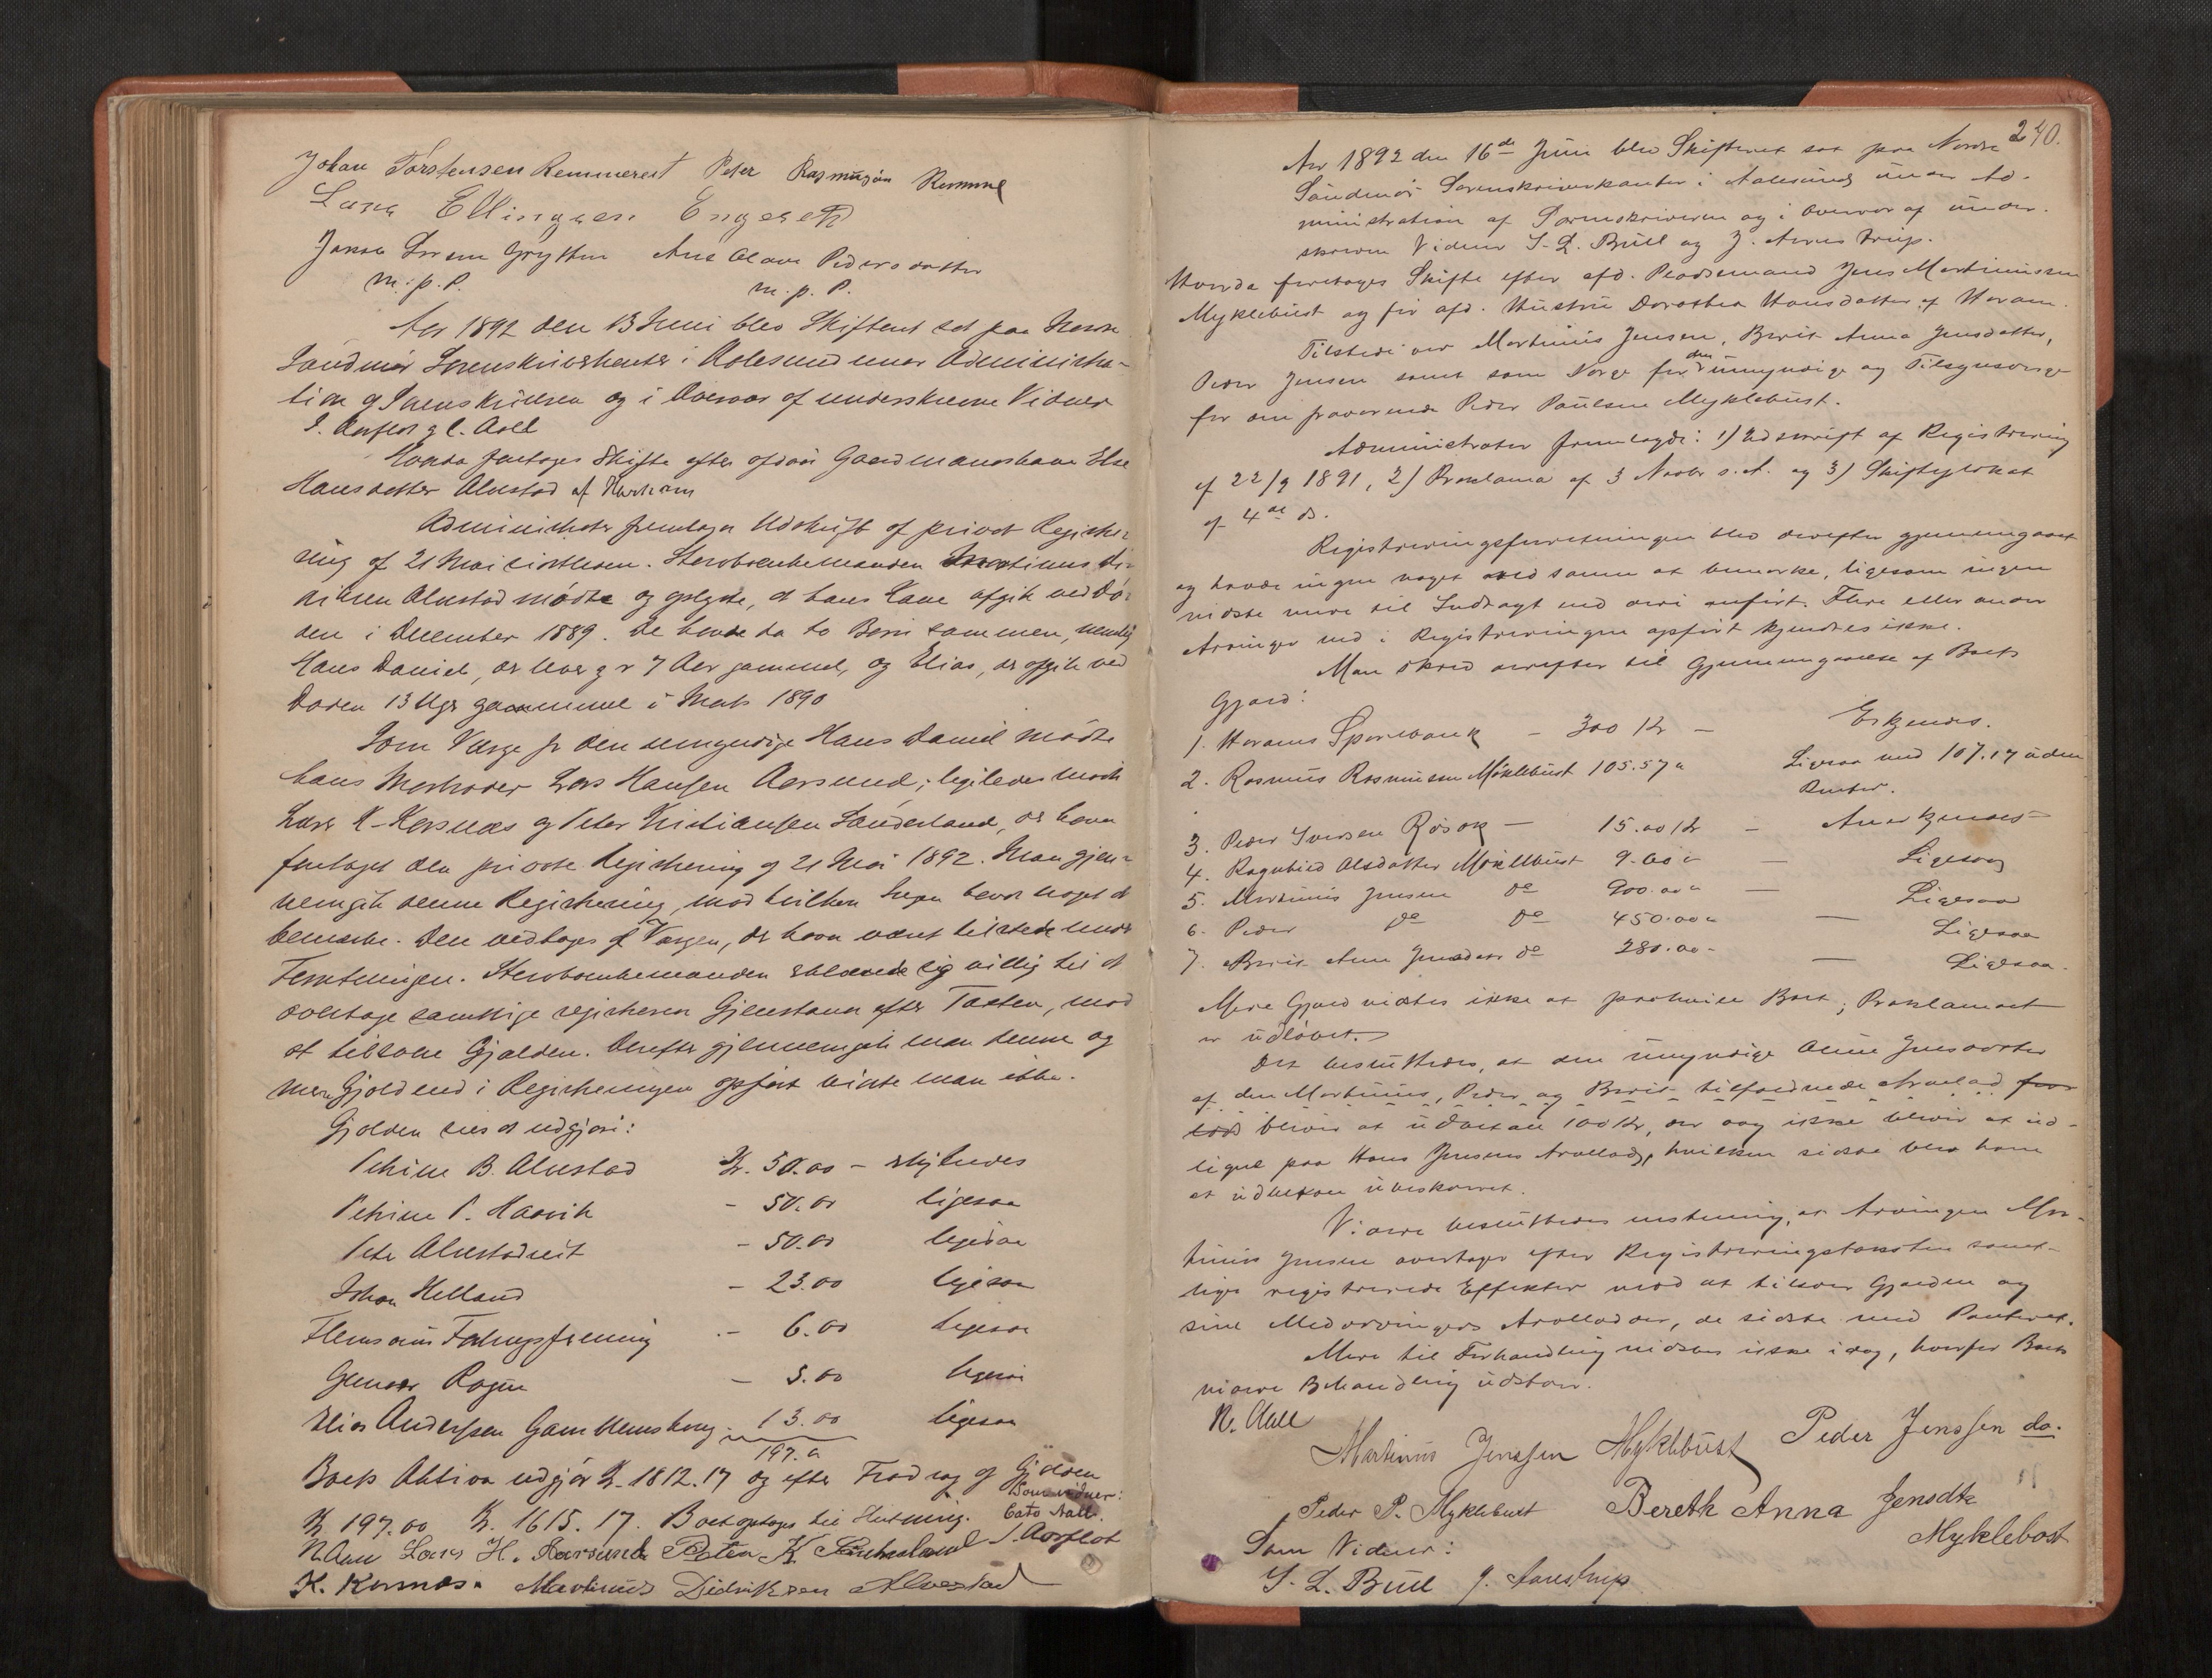 Johan Torstensen Remmereit Peter Rasmusøn Remme
Lars Ellingsen Engeset
Jakob Larsen Grytten Ane Olave Pedersdatter
m. p. P. m. p. P.
Aar 1892 den 13 Juni blev Skifteret sat paa Nordre
Søndmør Sorenskriverkontor i Aalesund under Administra-
tion af Sorenskriveren og i Overvær af underskrevne Vidner
S. Aarflot og C. Aall
Hvorda foretoges Skifte efter afdøde Gaardmandskone Else
Hansdatter Alvestad af Harham
Administrator fremlagde Udskrift af privat Registre-
ring af 21 Mai sidstleden. Stervboenkemanden Martinus Di-
driksen Alvestad mødte og oplyste, at hans Kone afgik ved Dø-
den i December 1889. De havde da to Børn sammen, nemlig
Hans Daniel, der lever og er 7 Aar gammel, og Elias, der afgik ved
Døden 13 Uger gammel i Marts 1890
Som Værge for den umyndige Hans Daniel mødte
hans Morbroder Lars Hansen Aarsund; ligeledes mødte
Lars K. Korsnæs og Peter Kristiansen Sønderland, der havde
foretaget den private Registrering af 21 Mai 1892. Man gjen-
nemgik denne Registrering, mod hvilken Ingen havde noget at
bemærke. Den vedtoges af Værgen, der havde været tilstede under
Forretningen. Stervboenkemanden erklærede sig villig til at
overtage samtlige registrerede Gjenstande efter Taxten, mod
at tilsvare Gjælden. Derefter gjennemgik man denne og
mere Gjæld end i Registreringen opført vidste man ikke.
Gjælden sees at udgjøre:
Petrine B. Alvestad Kr. 50.00 - erkjendes
Petrine P. Haavik - 50.00 ligesaa
Peter Alvestadreit - 50.00 ligesaa
Johan Helland - 23.00 ligesaa
Flemsøens Forbrugsforening - 6.00 ligesaa
Gunder Rogne - 5.00 ligesaa
Elias Anderssen Gamlemsborg - 13.00 ligesaa
197.00
Boets Aktiva udgjør Kr. 1812.17 og efter Fradrag af Gjælden
Kr 197.00 Kr. 1615.17. Boet optages til Slutning. Som Vidner:
Cato Aall.
N Aall Lars H. Aarsund Peter K. Sønderland S. Aarflot
K. Kornæs. Martinus Didriksen Alvestad
240.
Aar 1892 den 16de Juni blev Skifteret sat paa Nordre
Søndmør Sorenskriverkontor i Aalesund under Ad-
ministration af Sorenskriveren og i Overvær af under-
skrevne Vidner S. L. Bull og J. Aarestrup.
Hvorda foretoges Skifte efter afd. Pladsemand Jens Martinussen
Myklebust og før afd. Hustru Dorothea Hansdatter af Haram.
Tilstede var Martinus Jensen, Berit Anna Jensdatter,
Peder Jensen samt som Værge for den umyndige og Tilsynsværge
for den fraværende Peder Paulsen Myklebust.
Administrator fremlagde: 1) Udskrift af Registrering
af 22/9 1891, 2) Proklama af 3 Novbr s. A. og 3) Skifteplakat
af 4de ds.
Registreringsforretningen blev derefter gjennemgaaet
og havde ingen noget ved samme at bemærke, ligesom ingen
vidste mere til Indtægt end deri anført. Flere eller andre
Arvinger end i Registreringen opført kjendtes ikke.
Man skred derefter til Gjennemgaaelse af Boets
Gjæld:
1. Harams Sparebank - 300 Kr - Erkjendes.
2. Rasmus Rasmussen Møklebust 105.57 " Ligesaa med 107.17 uden
Renter.
3. Peder Iversen Røsok - 15.00 Kr - Anerkjendes
4. Ragnhild Olsdatter Møklebust 9.60 " — Ligesaa
5. Martinus Jensen do 900.00 " — Ligesaa
6. Peder do do 450.00 " — Ligesaa
7. Berit Anna Jensdatter do 280.00 - — Ligesaa.
Mere Gjæld vidstes ikke at paahvile Boet; Proklamaet
er udløbet.
Det besluttedes, at den umyndige Oline Jensdatter
af den Martinus, Peder og Berit tilfaldende Arvelod for-
lods bliver at udbetale 100 Kr, der dog ikke bliver at ud-
ligne paa Hans Jensens Arvelod, hvilken sidste blev ham
at udbetale ubeskaaret.
Videre besluttedes enstemmig, at Arvingen Mar-
tinus Jensen overtager efter Registreringstaksten samt-
lige registrerede Effekter mod at tilsvare Gjælden og
sine Medarvingers Arvelodder, de sidste med Panteret.
Mere til Forhandling vidstes ikke idag, hvorfor Boets
videre Behandling udstaar.
N. Aall
Martinus Jenssen Myklebust Peder Jenssen do.
Peder P. Myklebust Bereth Anna Jensdtr
Myklebost
Som Vidner:
S. L. Bull J. Aarestrup